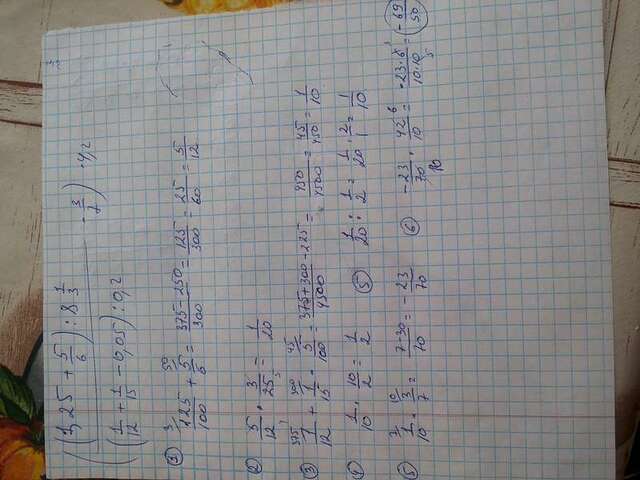 ((1,25 + 5/6) : 8 1/3) / ((1/12 + 1/15 - 0,05) : 0,2) - 3/7) · 4,2
① 125/100 + 5/6 = 375-250/300 = 125/300 = 25/60 = 5/12
② 5/12 · 3/25 = 1/20
③ 1/12 + 1/15 - 5/100 = 375+300-225/4500 = 450/4500 = 45/450 = 1/10
④ 1/10 · 10/2 = 1/2 ⑤ 1/20 : 1/2 = 1/20 · 2/1 = 1/10
⑤ 1/10 - 3/7 = 7-30/70 = -23/70 ⑥ -23/70 · 42/10 = -23·6/10·10 = -69/50